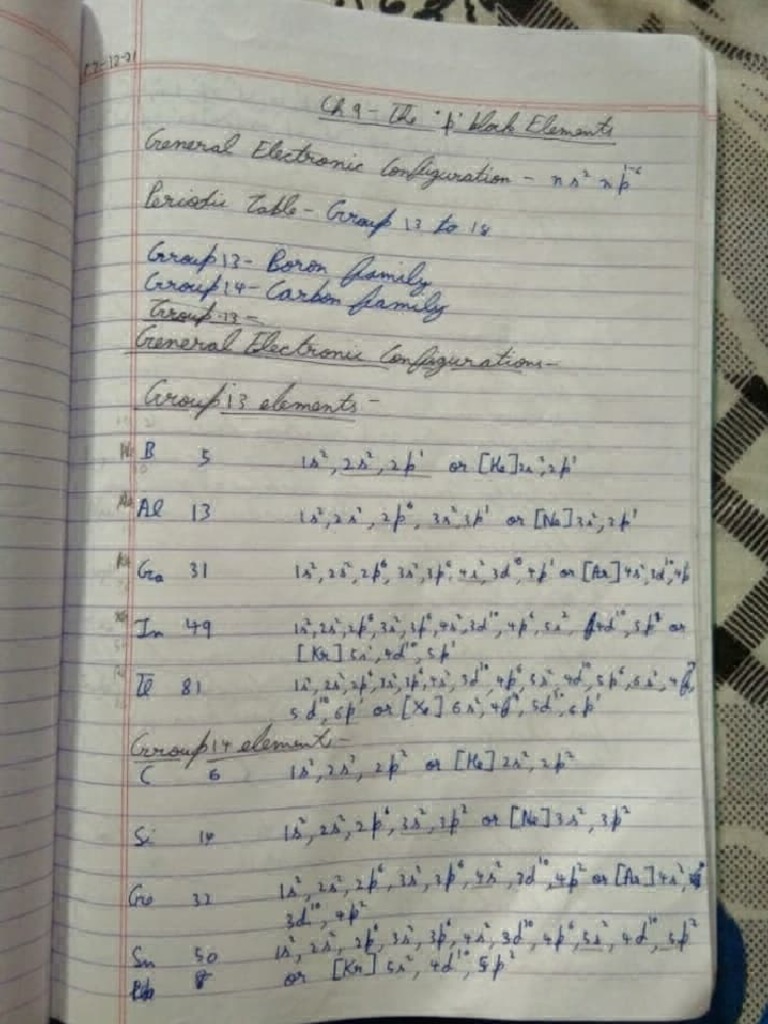 Ch 9 - The 'p' block Elements
General Electronic Configuration - ns² np¹⁻⁶
Periodic Table - Group 13 to 18
Group 13 - Boron family
Group 14 - Carbon family
Group 13 -
General Electronic Configurations -
Group 13 elements -
B 5 1s², 2s², 2p¹ or [He] 2s², 2p¹
Al 13 1s², 2s², 2p⁶, 3s², 3p¹ or [Ne] 3s², 3p¹
Ga 31 1s², 2s², 2p⁶, 3s², 3p⁶, 4s², 3d¹⁰, 4p¹ or [Ar] 4s², 3d¹⁰, 4p
In 49 1s², 2s², 2p⁶, 3s², 3p⁶, 4s², 3d¹⁰, 4p⁶, 5s², 4d¹⁰, 5p¹ or
[Kr] 5s², 4d¹⁰, 5p¹
Tl 81 1s², 2s², 2p⁶, 3s², 3p⁶, 4s², 3d¹⁰, 4p⁶, 5s², 4d¹⁰, 5p⁶, 6s², 4f
5d¹⁰, 6p¹ or [Xe] 6s², 4f, 5d¹⁰, 6p¹
Group 14 element -
C 6 1s², 2s², 2p² or [He] 2s², 2p²
Si 14 1s², 2s², 2p⁶, 3s², 3p² or [Ne] 3s², 3p²
Ge 32 1s², 2s², 2p⁶, 3s², 3p⁶, 4s², 3d¹⁰, 4p² or [Ar] 4s²,
3d¹⁰, 4p²
Sn 50 1s², 2s², 2p⁶, 3s², 3p⁶, 4s², 3d¹⁰, 4p⁶, 5s², 4d¹⁰, 5p²
Pb 8 or [Kr] 5s², 4d¹⁰, 5p²